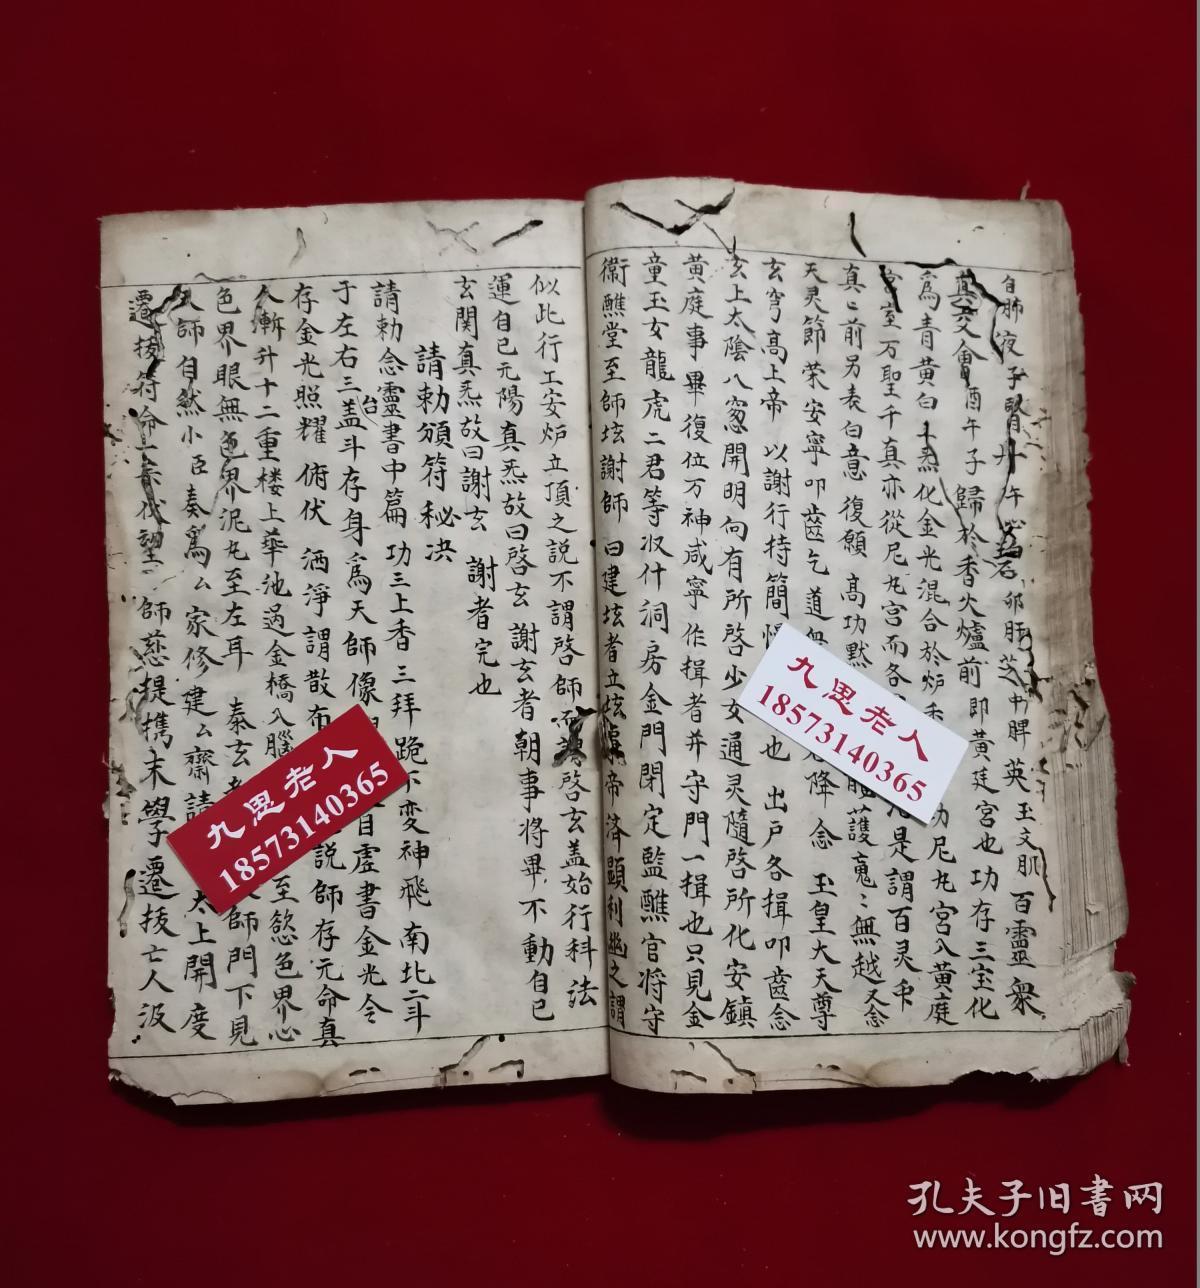 自肺液子腎丹午心卯肝芝中脾英玉文肌百靈眾
真交會酉午子歸於香火爐前即黃廷宮也功存三宝化
為青黃白十炁化金光混合於炉香功尼丸宮入黃庭
室万聖千真亦從尼丸宮而各是謂百灵
真〻前另表白意復願高功默護蒐〻無越又念
天灵節荣安寧叩齒乞道無降念玉皇大天尊
玄穹高上帝以謝行持簡慢也出戶各揖叩齒念
玄上太陰八窓開明向有所啓少女通灵隨啓所化安鎮
黄庭事畢復位万神咸寧作揖者并守門一揖也只見金
童玉女龍虎二君等收什洞房金門閉定監醮官将守
衞醮堂至師坛謝師曰建坛者立坛帝济顯利幽之謂
似此行工安炉立頂之説不謂啓師啓玄盖始行科法
運自己元陽真炁故曰啓玄謝玄者朝事將畢不動自己
玄関真炁故曰謝玄謝者完也
請勅頒符秘决
請勅念靈書中篇功三上香三拜跪下変神飛南北二斗
于左右三盖台斗存身爲天師像自虚書金光令
存金光照耀俯伏洒淨謂散布説師存元命真
人漸升十二重楼上華池過金橋入腦至慾色界心
色界眼無色界泥丸至左耳泰玄師門下見
天師自然小臣奏爲厶家修建厶齋請太上開度
遷拔符命一宗伏望師慈提携末學遷拔亡人汲
九思老人
18573140365
九思老人
18573140365
孔夫子旧書网
www.kongfz.com